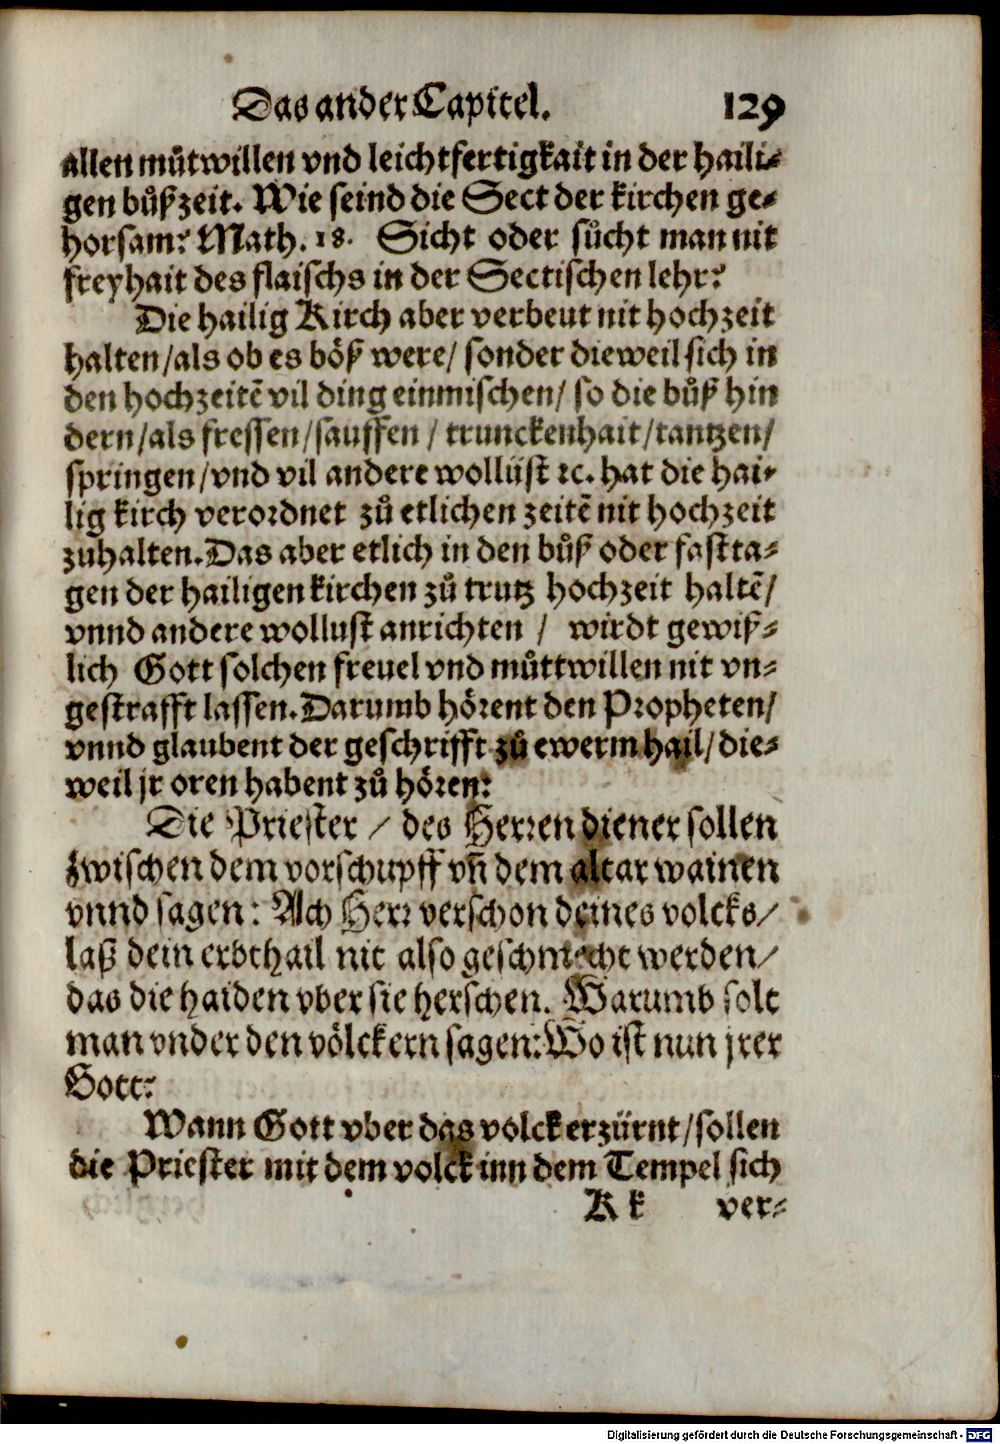 Das ander Capitel. 129
allen můtwillen vnd leichtfertigkait in der haili-
gen bůßzeit. Wie seind die Sect der kirchen ge-
horsam? Math. 18. Sicht oder sůcht man nit
freyhait des flaischs in der Sectischen lehr?
Die hailig Kirch aber verbeut nit hochzeit
halten/als ob es böß were/ sonder dieweil sich in
den hochzeitē vil ding einmischen/ so die bůß hin
dern/als fressen/sauffen / trunckenhait/tantzen/
springen/vnd vil andere wollüst ꝛc. hat die hai-
lig kirch verordnet zů etlichen zeitē nit hochzeit
zuhalten. Das aber etlich in den bůß oder fastta-
gen der hailigen kirchen zů trutz hochzeit haltē/
vnnd andere wollust anrichten / wirdt gewiß-
lich Gott solchen freuel vnd můttwillen nit vn-
gestrafft lassen. Darumb hörent den Propheten/
vnnd glaubent der geschrifft zů ewerm hail/die-
weil jr oren habent zů hören:
Die Priester / des Herren diener sollen
zwischen dem vorschupff vn̄ dem altar wainen
vnnd sagen: Ach Herr verschon deines volcks/
laß dein erbthail nit also geschmecht werden/
das die haiden vber sie herschen. Warumb solt
man vnder den völckern sagen: Wo ist nun jrer
Gott?
Wann Gott vber das volck erzürnt/sollen
die Priester mit dem volck inn dem Tempel sich
K k ver-
Digitalisierung gefördert durch die Deutsche Forschungsgemeinschaft - DFG